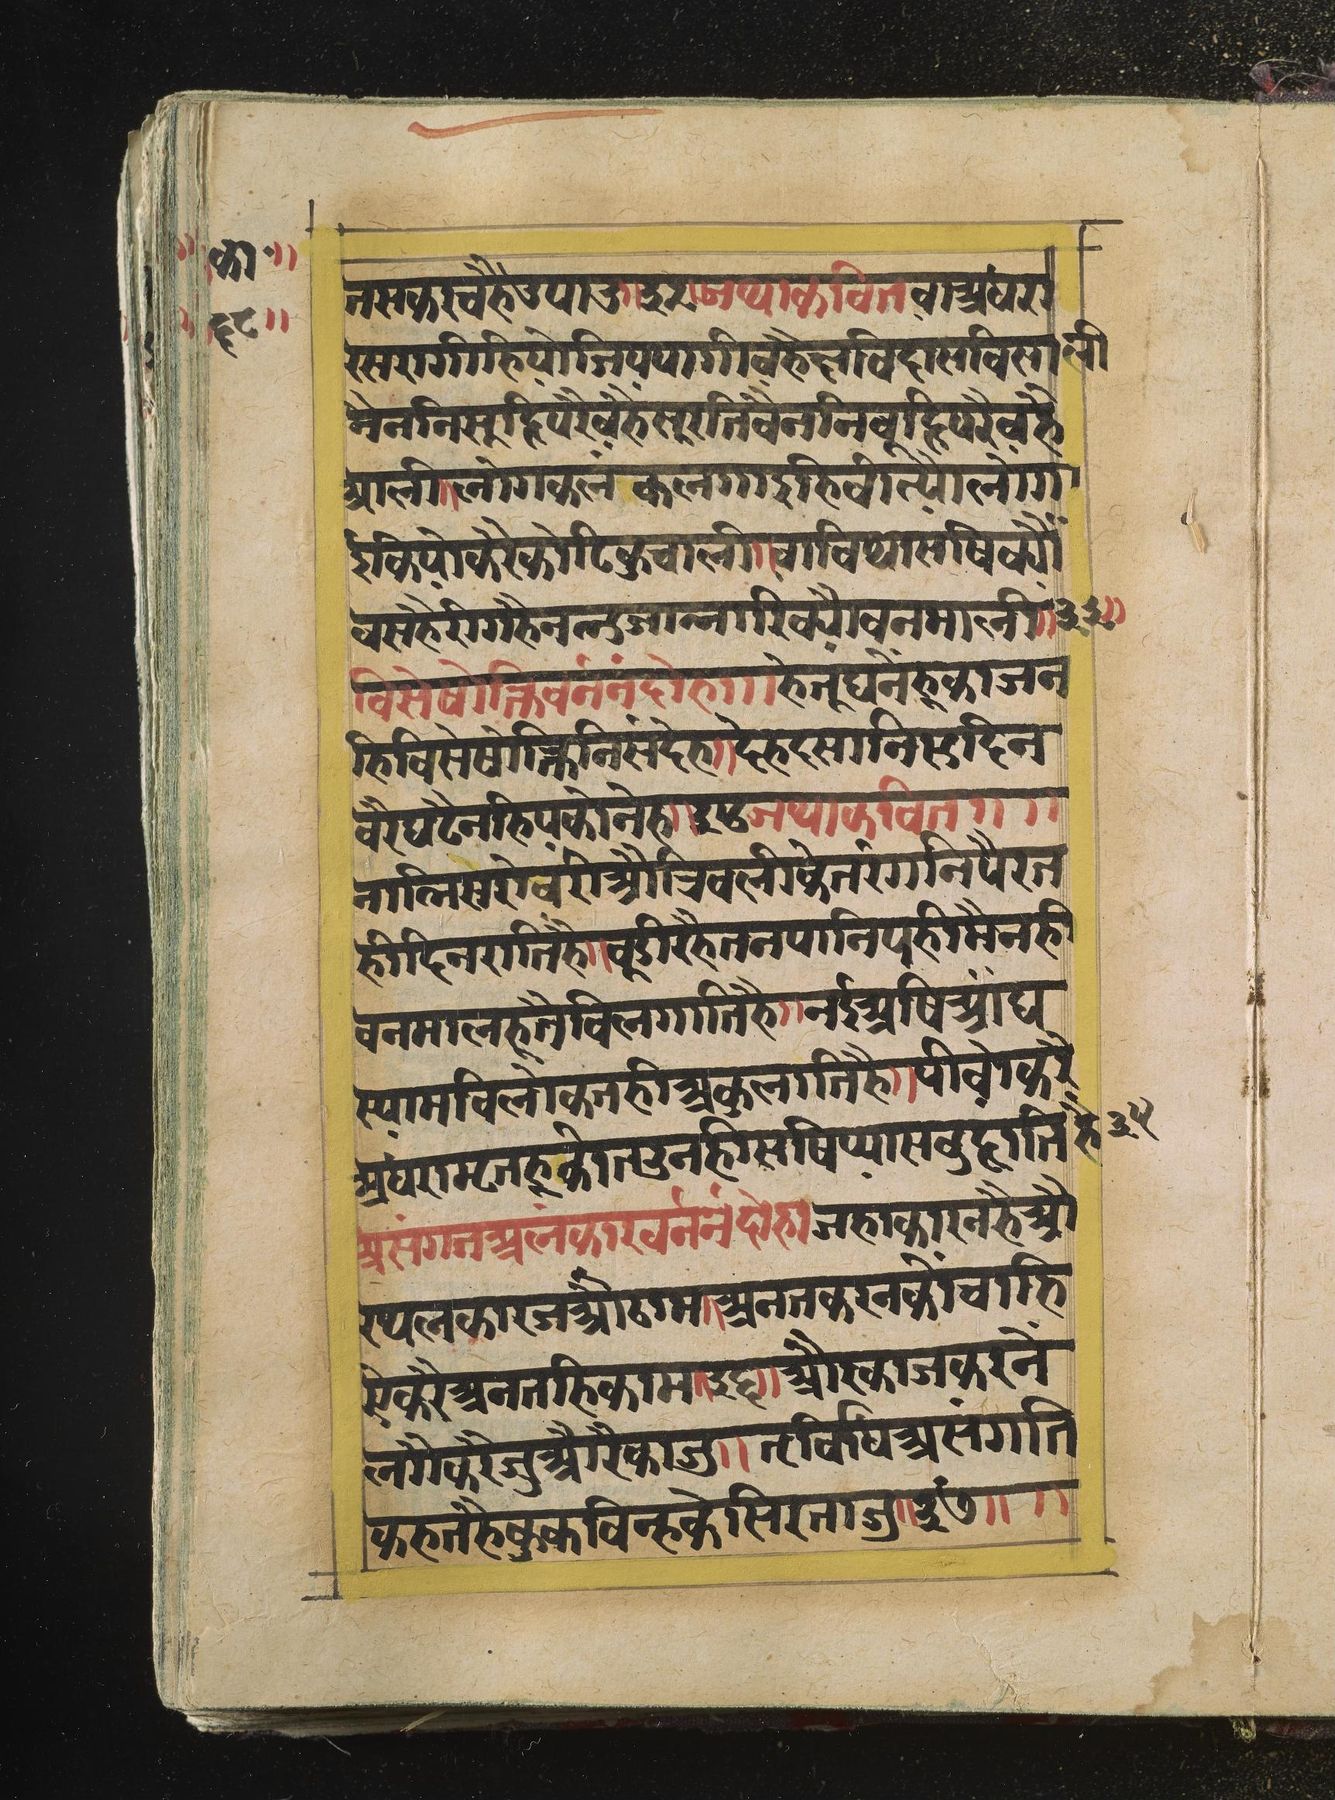 का
६८
नसकारचहैउपाउ॥३२॥जथाकवित वाअधरर
रसरागीहियोजिययागीवहैछविदासविसाली
नैननिसूझिपरैवहैसूरतिवैननिबूझिपरैवहै
आली॥लोगकलंकलगाइहिवीत्यौलोग
इकियोकरैकोटिकुचाली॥वाविथासषिक्यौं
वसहैरीगहैनन्लुजान्नारिक्यौवनमाली॥३३॥
विसेषोक्तिवर्ननंदोहा॥॥हेतूघनैंहूकाजन
हिविसेषोक्तिनिसंदेह॥देहदसानिसदिन
वरैघटैनहियकोनेह॥३४॥जथाकवित॥॥
नाभिसरोवरीऔत्रिवलीकेतरंगनिपैरत
हीदिनरातिहै॥बूडीरहैतनपानिपहीमैनही
वनमालहूतैविलगातिहै॥नईअषिआंघ
स्यामविलोकतहीअकुलातिहै॥पीवोकरै
अधरामृतहूकोतउनहिसषिप्यासबुझाति है३५
असंगतअलंकारवर्ननंदोहा जहाकारनहैऔ
रथलकारजऔठाम॥अनतकरनकोंचाहि
येकरैअनतहिकाम॥३६॥औरकाजकरनें
लगैकरैजुऔरैकाजु॥तर्विधिअसंगति
कहतहैसुकविन्हकेसिरताजु॥३७॥॥